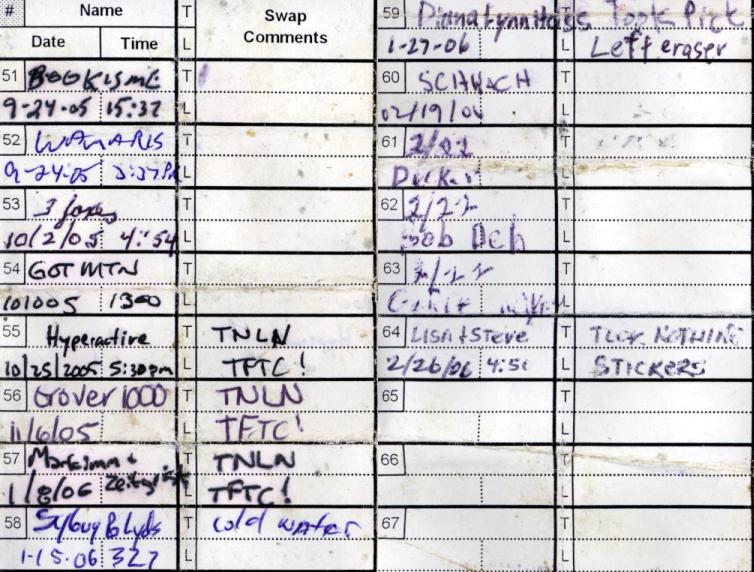 # Name T Swap Comments
Date Time L
51 BOOKISMC T
9-24-05 15:37 L
52 WAMARIS T
9-24-05 3:37PM L
53 3 foxes T
10/2/05 4:54 L
54 GOT MTN T
101005 1300 L
55 Hyperactive T TNLN
10/25/2005 5:30pm L TFTC!
56 Grover 1000 T TNLN
11/6/05 L TFTC!
57 T TNLN
1/8/06 L TFTC!
58 T cold water
1-15-06 327 L
59 T Took Pick
1-27-06 L Left eraser
60 SCHWACH T
02/19/06 L
61 T
L
62 2/22 T
Bob Deb L
63 T
L
64 LISA + STEVE T TOOK NOTHING
2/26/06 4:51 L STICKERS
65 T
L
66 T
L
67 T
L